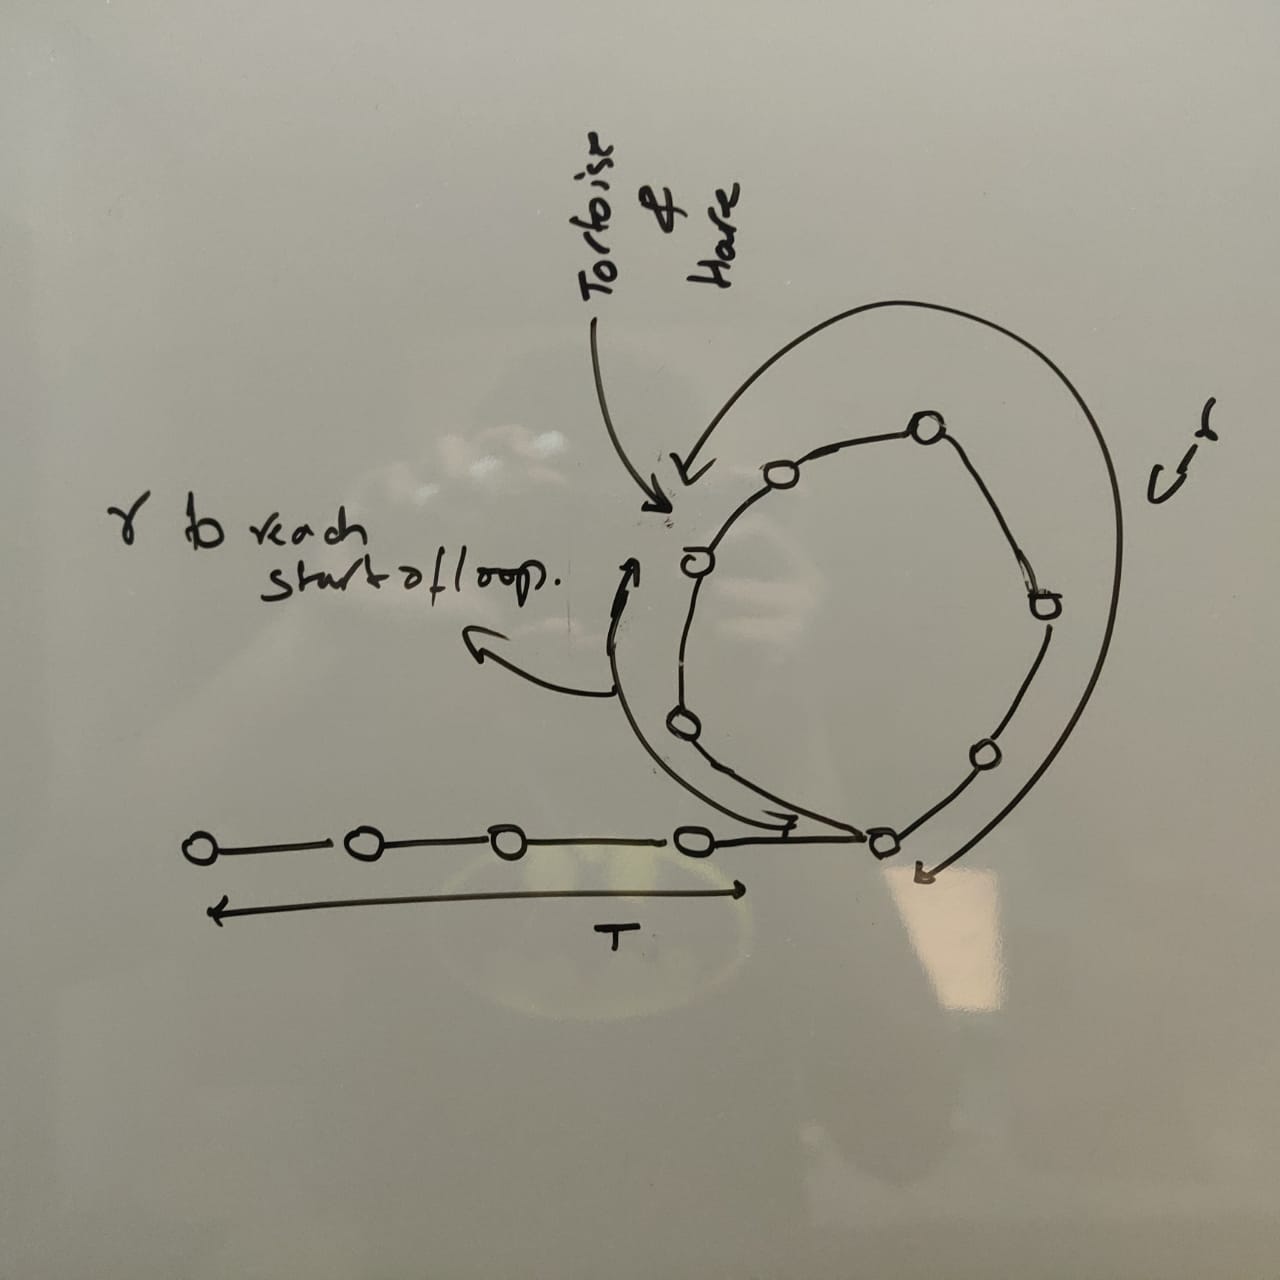 Tortoise
&
Hare
r to reach
start of loop.
C-r
T